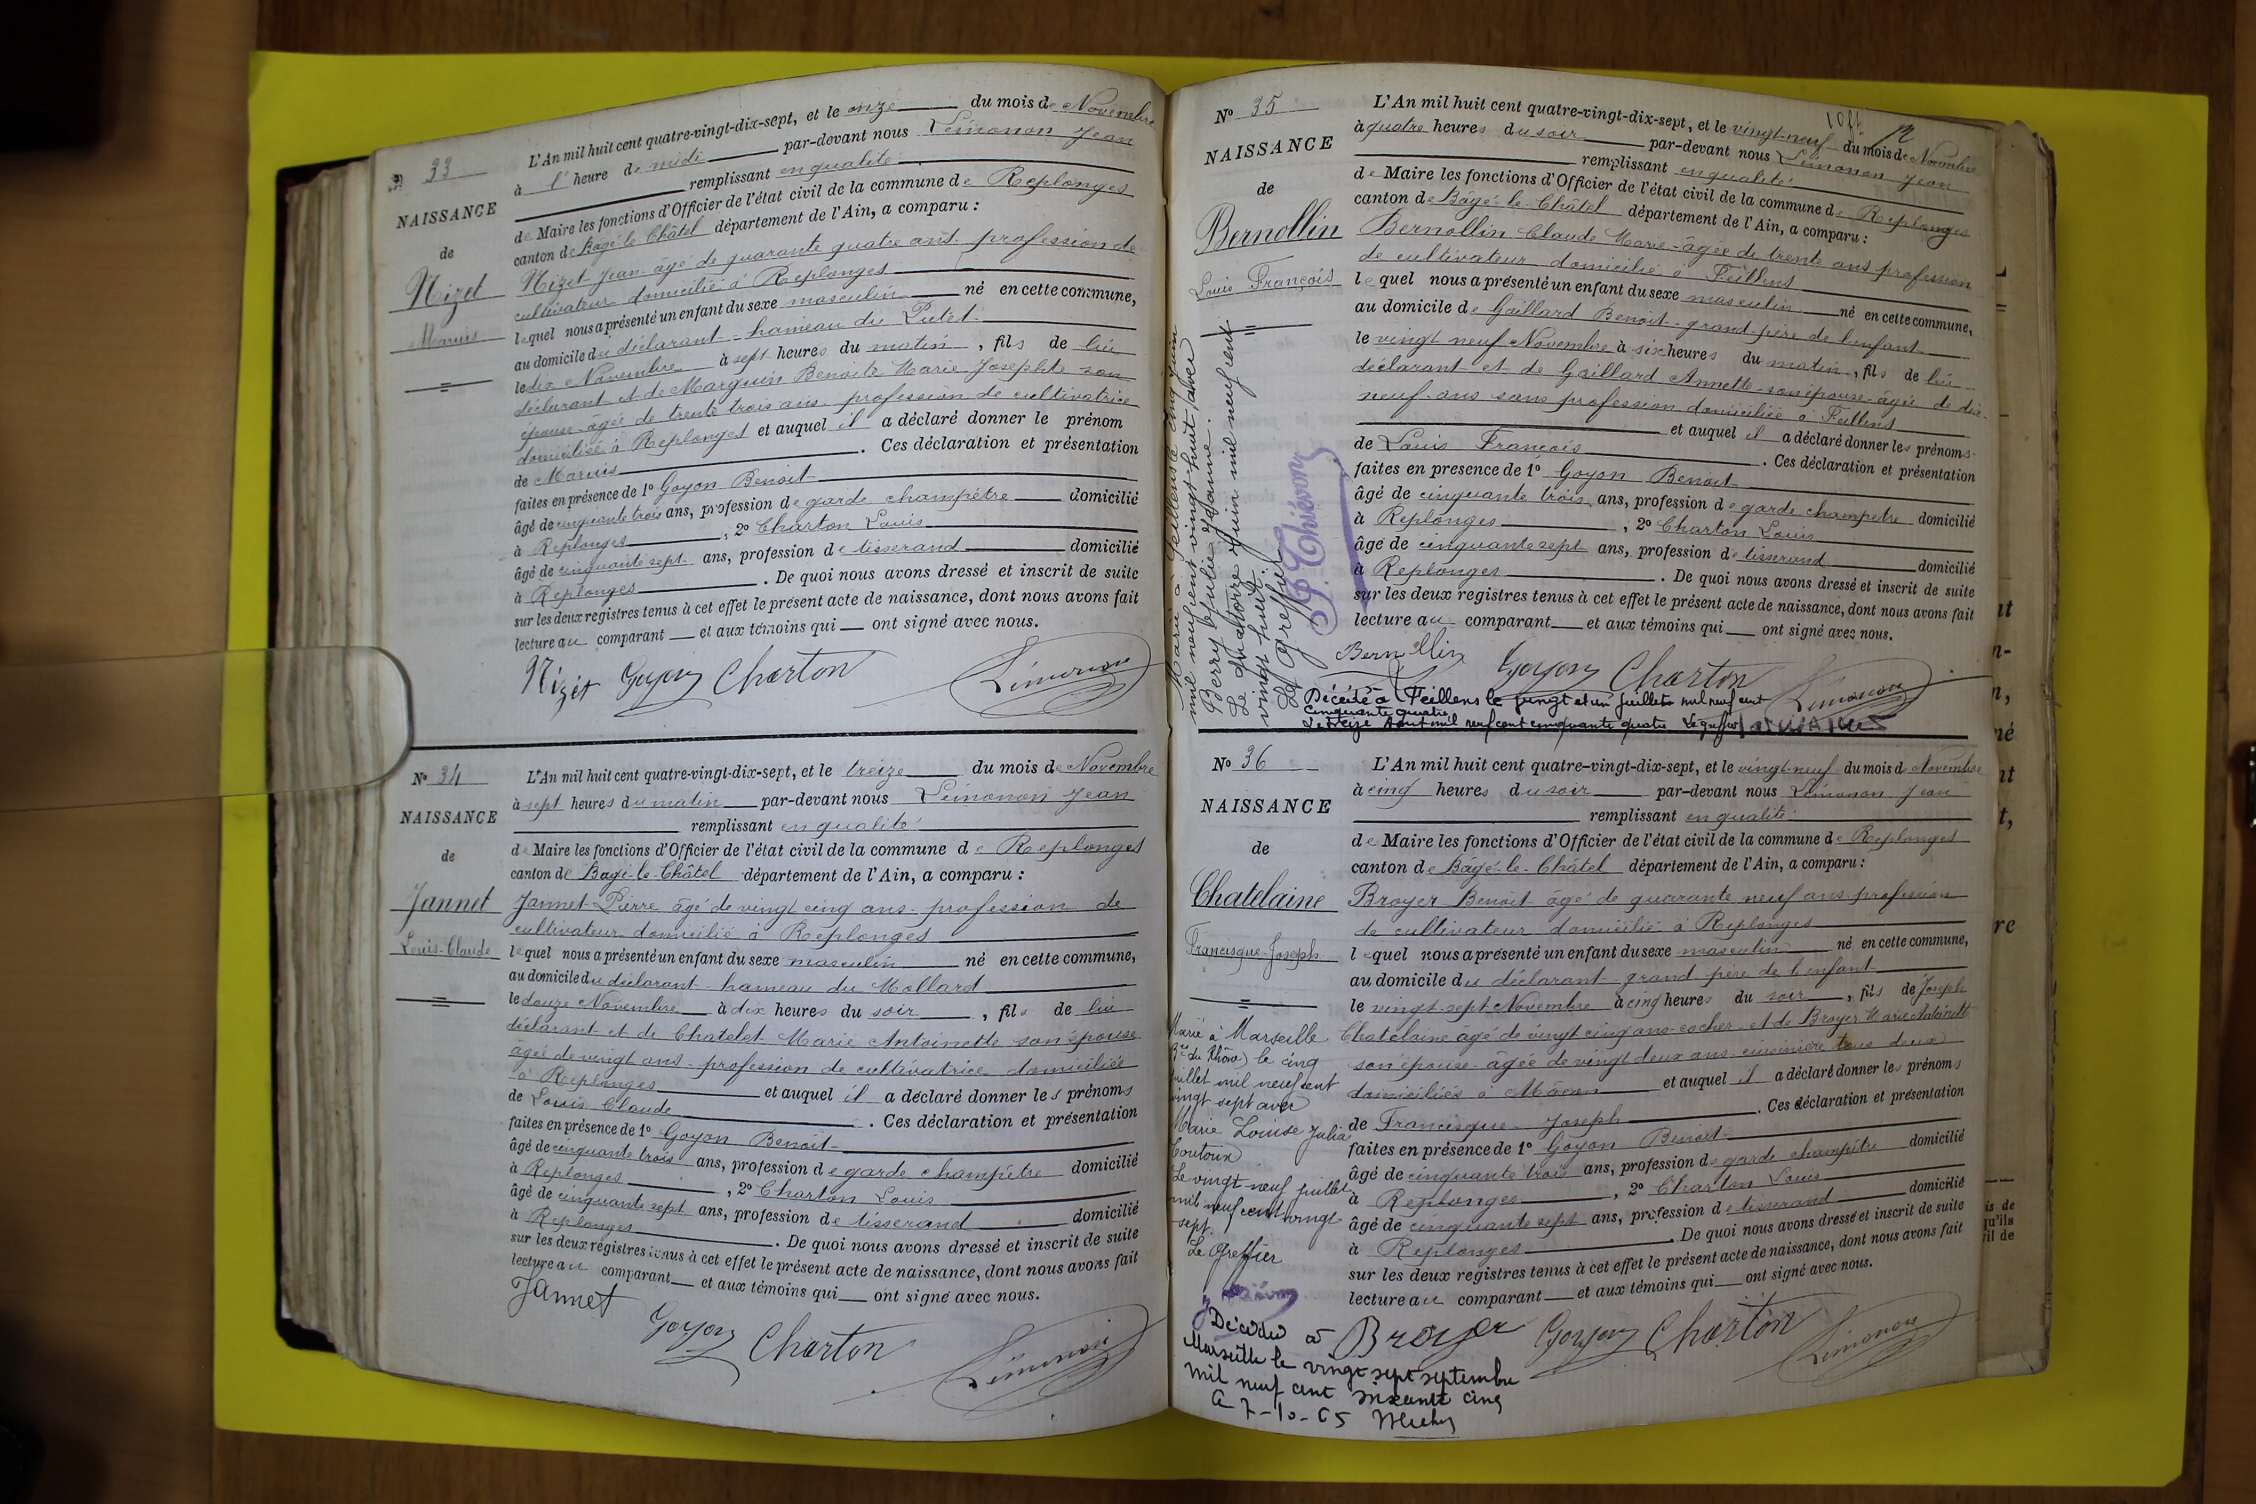 N° 33
NAISSANCE
de
Nizet
Marius
L'An mil huit cent quatre-vingt-dix-sept, et le onze du mois de Novembre
à l' heure de midi par-devant nous Limonon Jean
remplissant en qualité
de Maire les fonctions d'Officier de l'état civil de la commune de Replonges
canton de Bagé-le-Châtel département de l'Ain, a comparu :
Nizet Jean âgé de quarante quatre ans profession de
cultivateur domicilié à Replonges
lequel nous a présenté un enfant du sexe masculin né en cette commune,
au domicile du déclarant hameau du Putet
le dix Novembre à sept heures du matin, fils de lui
déclarant et de Marguin Benoite Marie Josephte son
épouse âgée de trente trois ans profession de cultivatrice
domiciliée à Replonges et auquel il a déclaré donner le prénom
de Marius . Ces déclaration et présentation
faites en présence de 1° Goyon Benoit
âgé de cinquante trois ans, profession de garde champêtre domicilié
à Replonges, 2° Charton Louis
âgé de cinquante sept ans, profession de tisserand domicilié
à Replonges . De quoi nous avons dressé et inscrit de suite
sur les deux registres tenus à cet effet le présent acte de naissance, dont nous avons fait
lecture au comparant et aux témoins qui ont signé avec nous.
Nizet Goyon Charton Limonon
N° 34
NAISSANCE
de
Jannet
Louis-Claude
L'An mil huit cent quatre-vingt-dix-sept, et le treize du mois de Novembre
à sept heures du matin par-devant nous Limonon Jean
remplissant en qualité
de Maire les fonctions d'Officier de l'état civil de la commune de Replonges
canton de Bagé-le-Châtel département de l'Ain, a comparu :
Jannet Pierre âgé de vingt cinq ans profession de
cultivateur domicilié à Replonges
lequel nous a présenté un enfant du sexe masculin né en cette commune,
au domicile du déclarant hameau du Mollard
le douze Novembre à dix heures du soir, fils de lui
déclarant et de Chatelet Marie Antoinette son épouse
âgée de vingt ans profession de cultivatrice domiciliée
à Replonges et auquel il a déclaré donner les prénoms
de Louis Claude . Ces déclaration et présentation
faites en présence de 1° Goyon Benoit
âgé de cinquante trois ans, profession de garde champêtre domicilié
à Replonges, 2° Charton Louis
âgé de cinquante sept ans, profession de tisserand domicilié
à Replonges . De quoi nous avons dressé et inscrit de suite
sur les deux registres tenus à cet effet le présent acte de naissance, dont nous avons fait
lecture au comparant et aux témoins qui ont signé avec nous.
Jannet
Goyon Charton Limonon
N° 35
NAISSANCE
de
Bernollin
Louis François
L'An mil huit cent quatre-vingt-dix-sept, et le vingt-neuf du mois de Novembre
à quatre heures du soir par-devant nous Limonon Jean
remplissant en qualité
de Maire les fonctions d'Officier de l'état civil de la commune de Replonges
canton de Bâgé-le-Châtel département de l'Ain, a comparu :
Bernollin Claude Marie âgée de trente ans profession
de cultivateur domicilié à Feillens
lequel nous a présenté un enfant du sexe masculin né en cette commune,
au domicile de Gaillard Benoit grand-père de l'enfant
le vingt neuf Novembre à six heures du matin, fils de lui
déclarant et de Gaillard Annette son épouse âgée de dix-
neuf ans sans profession domiciliée à Feillens
et auquel il a déclaré donner les prénoms
de Louis François . Ces déclaration et présentation
faites en presence de 1° Goyon Benoit
âgé de cinquante trois ans, profession de garde champêtre domicilié
à Replonges, 2° Charton Louis
âgé de cinquante sept ans, profession de tisserand domicilié
à Replonges . De quoi nous avons dressé et inscrit de suite
sur les deux registres tenus à cet effet le présent acte de naissance, dont nous avons fait
lecture au comparant et aux témoins qui ont signé avec nous.
Bernollin Goyon Charton Limonon
Marié à Feillens le cinq Juin
mil neuf cent vingt-huit avec
Berry Julie
Le quatorze Juin mil neuf cent
vingt-huit.
Le Greffier
Décédé à Feillens le vingt et un juillet mil neuf cent
cinquante quatre
Le treize Aout mil neuf cent cinquante quatre Le greffier
N° 36
NAISSANCE
de
Chatelaine
Francisque-Joseph
L'An mil huit cent quatre-vingt-dix-sept, et le vingt-neuf du mois de Novembre
à cinq heures du soir par-devant nous Limonon Jean
remplissant en qualité
de Maire les fonctions d'Officier de l'état civil de la commune de Replonges
canton de Bâgé-le-Châtel département de l'Ain, a comparu :
Broyer Benoit âgé de quarante neuf ans profession
de cultivateur domicilié à Replonges
lequel nous a présenté un enfant du sexe masculin né en cette commune,
au domicile du déclarant grand père de l'enfant
le vingt-sept Novembre à cinq heures du soir, fils de Joseph
Chatelaine âgé de vingt cinq ans cocher et de Broyer Marie Antoinette
son épouse âgée de vingt deux ans cuisinière tous deux
domiciliés à Mâcon et auquel il a déclaré donner les prénoms
de Francisque Joseph . Ces déclaration et présentation
faites en présence de 1° Goyon Benoit
âgé de cinquante trois ans, profession de garde champêtre domicilié
à Replonges, 2° Charton Louis
âgé de cinquante sept ans, profession de tisserand domicilié
à Replonges . De quoi nous avons dressé et inscrit de suite
sur les deux registres tenus à cet effet le présent acte de naissance, dont nous avons fait
lecture au comparant et aux témoins qui ont signé avec nous.
Broyer Goyon Charton Limonon
Marié à Marseille
(Bes du Rhône) le cinq
Juillet mil neuf cent
vingt sept avec
Marie Louise Julia
Coutoux
Le vingt neuf juillet
mil neuf cent vingt
sept.
Le Greffier
Décédé à
Marseille le vingt sept septembre
mil neuf cent soixante cinq
Le 7-10-65